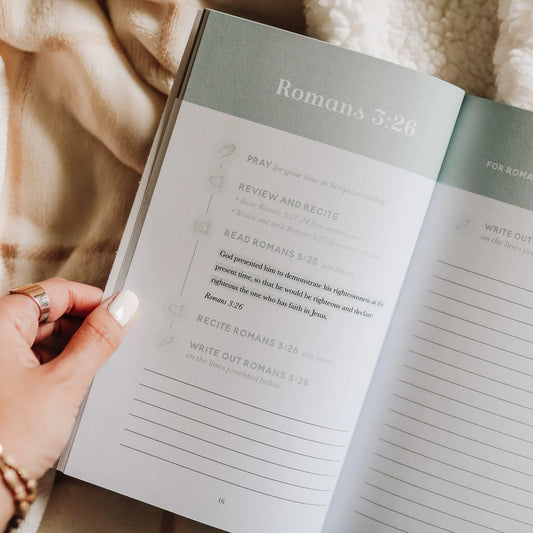 Romans 3:26
PRAY for your time in Scripture today.
REVIEW AND RECITE
• Recite Romans 3:21-24 from memory
• Recite and write Romans 3:25
READ ROMANS 3:26 ten times
God presented him to demonstrate his righteousness at the
present time, so that he would be righteous and declare
righteous the one who has faith in Jesus.
Romans 3:26
RECITE ROMANS 3:26 ten times
WRITE OUT ROMANS 3:26
on the lines provided below
16
FOR ROMA
WRITE OUT
on the lines prov